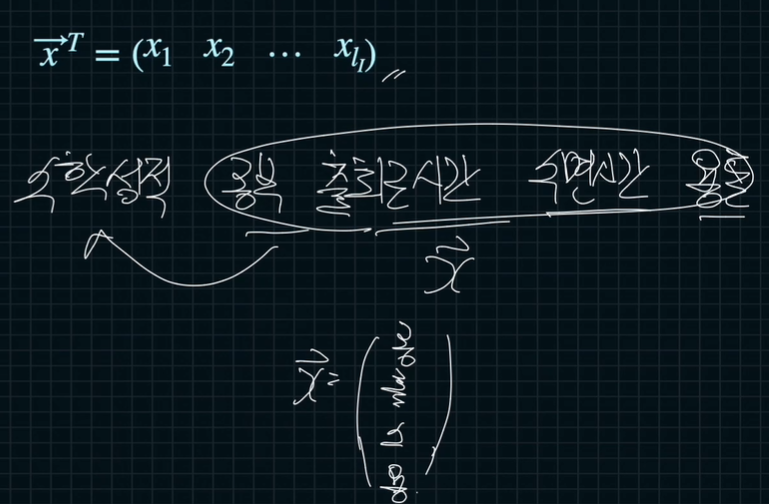 x⃗ᵀ = (x₁ x₂ … x_{l_I})
수학성적 공부 출퇴근시간 수면시간 용돈
x⃗
x⃗ =